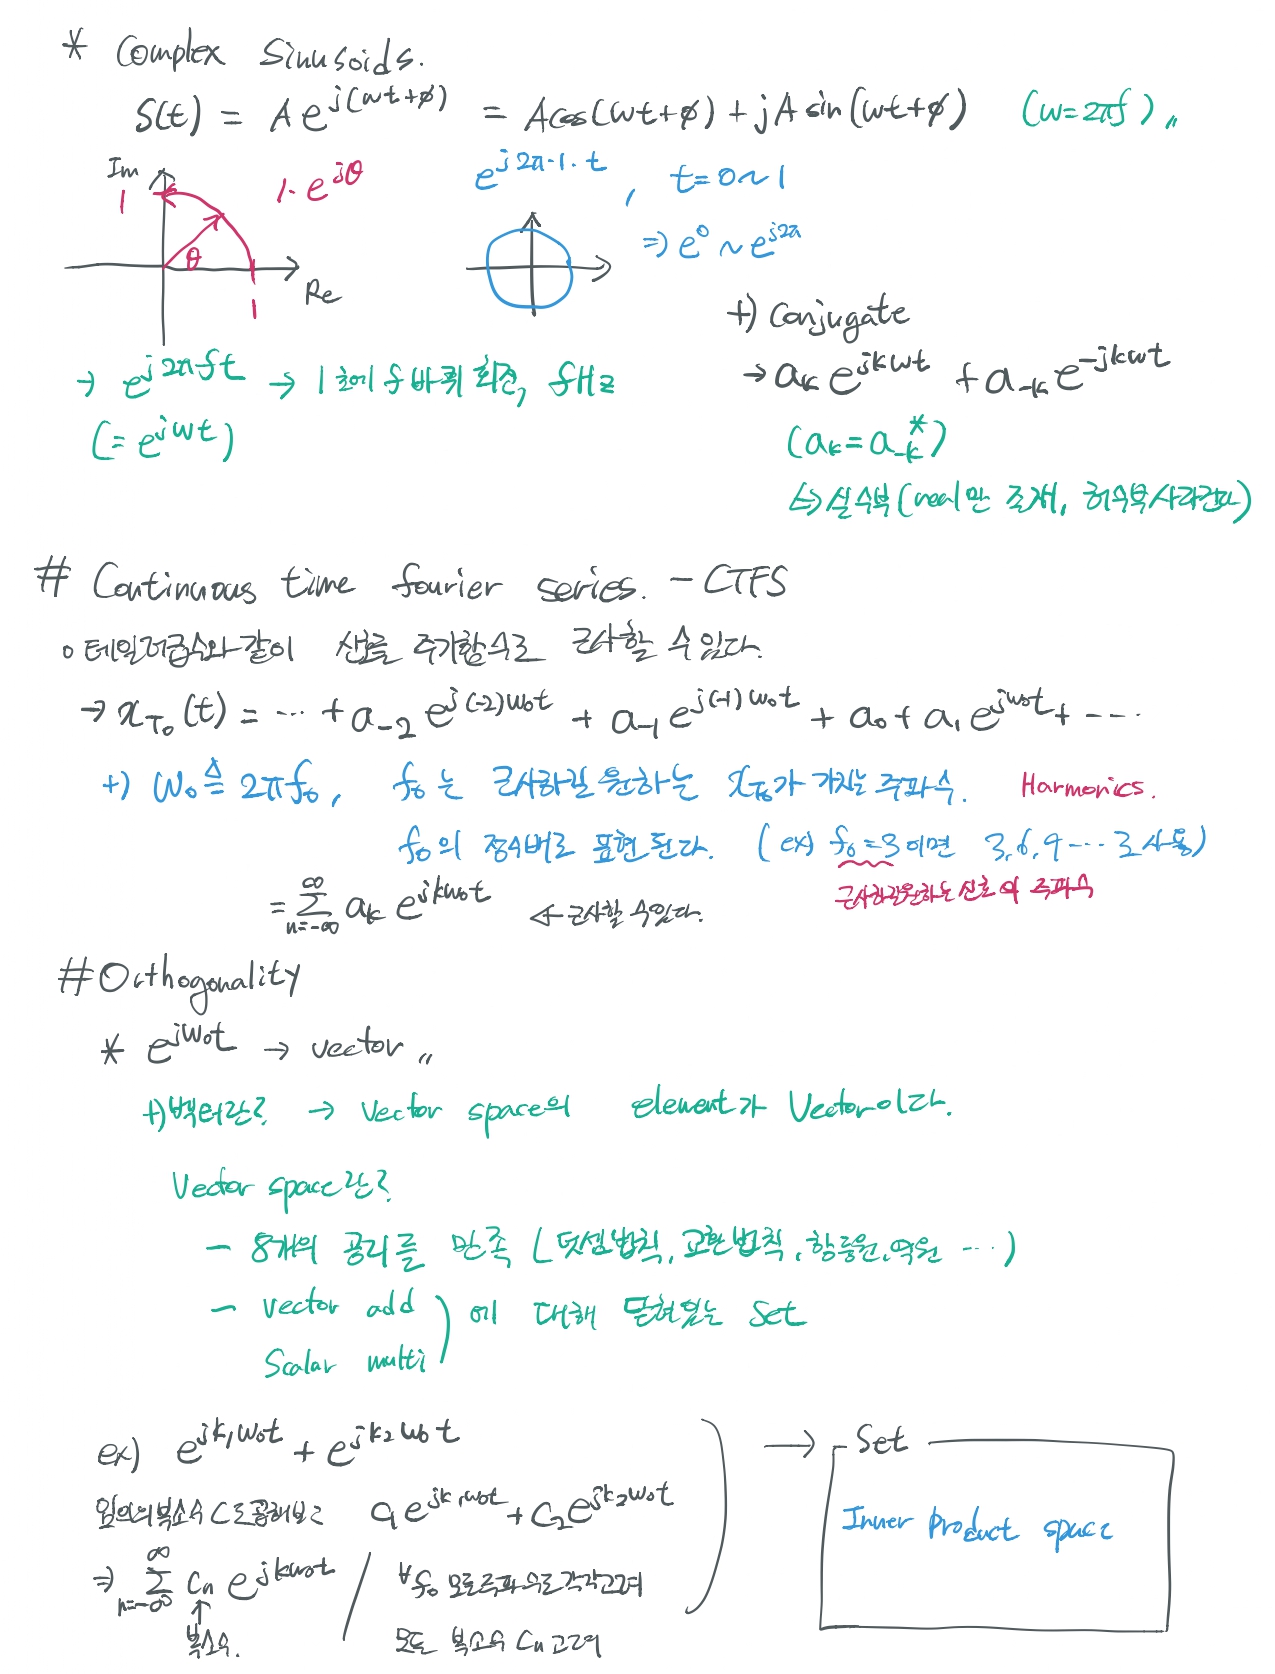 * Complex Sinusoids.
S(t) = Ae^{j(wt+φ)} = Acos(wt+φ) + jA sin(wt+φ) (w=2πf) 〃
Im 1 1·e^{jθ} e^{j2π·1·t} , t=0~1
θ ⇒ e^0 ~ e^{j2π}
Re 1
+) Conjugate
→ a_k e^{jkwt} + a_{-k} e^{-jkwt}
→ e^{j2πft} → 1초에 f바퀴 회전, fHz
(= e^{jwt})
(a_k = a_{-k}^*)
↳ 실수부(real만 존재, 허수부 사라진다)
# Continuous time fourier series. - CTFS
o 테일러급수와 같이 신호를 주기함수로 근사할 수 있다.
→ x_{T_0}(t) = ... + a_{-2} e^{j(-2)w_0t} + a_{-1} e^{j(-1)w_0t} + a_0 + a_1 e^{jw_0t} + ...
+) w_0 ≜ 2πf_0, f_0 는 근사하길 원하는 x_{T_0}가 가지는 주파수. Harmonics.
f_0의 정수배로 표현된다. (ex) f_0=3이면 3,6,9 ... 로 사용)
근사하길원하는 신호의 주파수
= Σ_{n=-∞}^{∞} a_k e^{jkw_0t} ← 근사할 수있다.
# Orthogonality
* e^{jw_0t} → vector 〃
+) 벡터란? → Vector space의 element가 Vector이다.
Vector space란?
- 8개의 공리를 만족 (덧셈법칙, 교환법칙, 항등원, 역원 ...)
- vector add
Scalar multi
에 대해 닫혀있는 Set
ex) e^{jk_1w_0t} + e^{jk_2w_0t}
임의의복소수 C로곱해보면 c_1 e^{jk_1w_0t} + c_2 e^{jk_2w_0t}
⇒ Σ_{n=-∞}^{∞} c_n e^{jkw_0t} / ∀f_0 모든주파수로각각고려
↑
복소수. 모든 복소수 Cn고려
→ Set
Inner product space